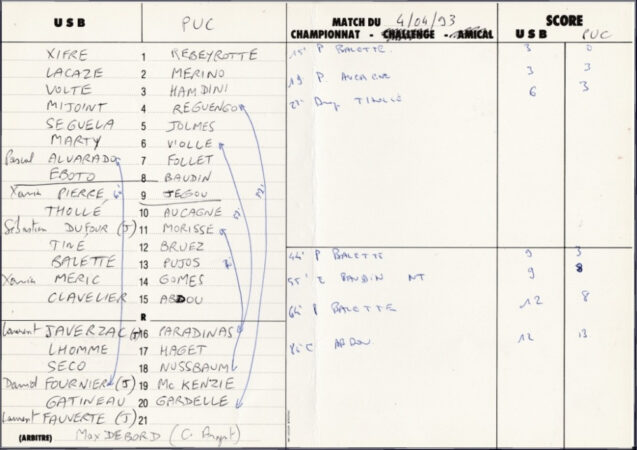 USB PUC
XIFRE 1 REBEYROTTE
LACAZE 2 MERINO
VOLTE 3 HAMDINI
MIJOINT 4 REGUENGO
SEGUELA 5 JOLMES
MARTY 6 VIOLLE
Pascal ALVARADO 7 FOLLET
EBOTO 8 BAUDIN
Xavier PIERRE 9 JEGOU
THOLLÉ 10 AUCAGNE
Sébastien DUFOUR (J) 11 MORISSE
TINE 12 BRUEZ
BALETTE 13 PUJOS
Xavier MERIC 14 GOMES
CLAVELIER 15 ABDOU
R
Laurent JAVERZAC (J) 16 PARADINAS
LHOMME 17 HAGET
SECO 18 NUSSBAUM
David FOURNIER (J) 19 Mc KENZIE
GATINEAU 20 GARDELLE
Laurent FAUVERTE (J) 21
(ARBITRE) Max DEBORD
MATCH DU 4/04/93
CHAMPIONNAT - CHALLENGE - AMICAL
SCORE
USB PUC
15' P BALETTE 3 0
19 P. AUCAGNE 3 3
Drop THOLLÉ 6 3
44' P BALETTE 9 3
55' E BAUDIN NT 9 8
64' P BALETTE 12 8
E ABDOU 12 13